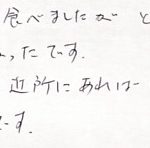 食べましたが と
ったです.
近所にあれば
です.